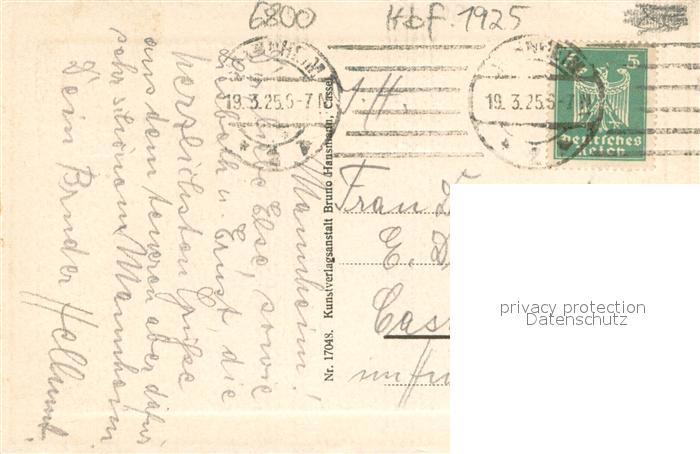 6800 Hbf 1925
MANNHEIM
19.3.25.6-7 N
MANNHEIM
19.3.25.6-7 N
5
5
Deutsches
Reich
I. H.
Mannheim!
Liebe Else, sowie
Lisbeth u. Ernst, die
herzlichsten Grüße
aus dem teueren aber dafür
sehr schönem Mannheim
Dein Bruder Hellmut.
Nr. 17048. Kunstverlagsanstalt Bruno Hansmann, Cassel
Frau D
E. D
Cass
privacy protection
Datenschutz